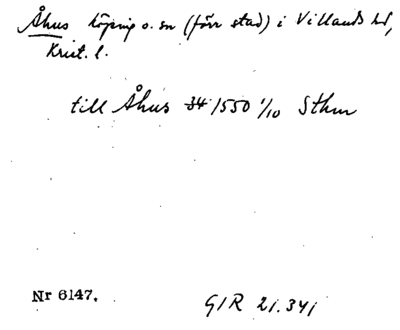 Åhus köping o. sn (förr stad) i Villands hd,
Krist. l.
till Åhus 34/1550 1/10 Sthm
Nr 6147.
GIR 21.341